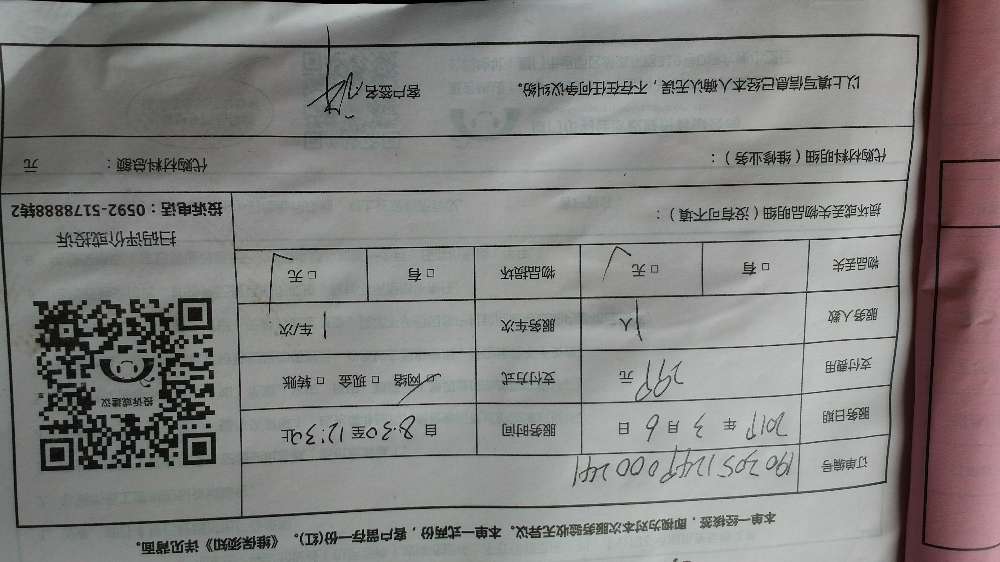 本单一经接签，即视为对本次服务验收无异议。本单一式两份，客户留存一份(红)。《维保须知》详见背面。
订单编号
服务日期 年 3 月 6 日 服务时间 自 8:30 至 12:30 止
支付费用 299 元 支付方式 □ 网络 □ 现金 □ 转账
服务人数 1人 服务车次 1 车/次
物品丢失 □ 有 □ 无 物品损坏 □ 有 □ 无
投诉或建议
扫码评价或投诉
投诉电话：0592-5178888转2
损坏或丢失物品明细（没有可不填）：
代购材料明细（维修业务）： 代购材料总额： 元
以上填写信息已经本人确认无误，不存在任何争议纠纷。 客户签名